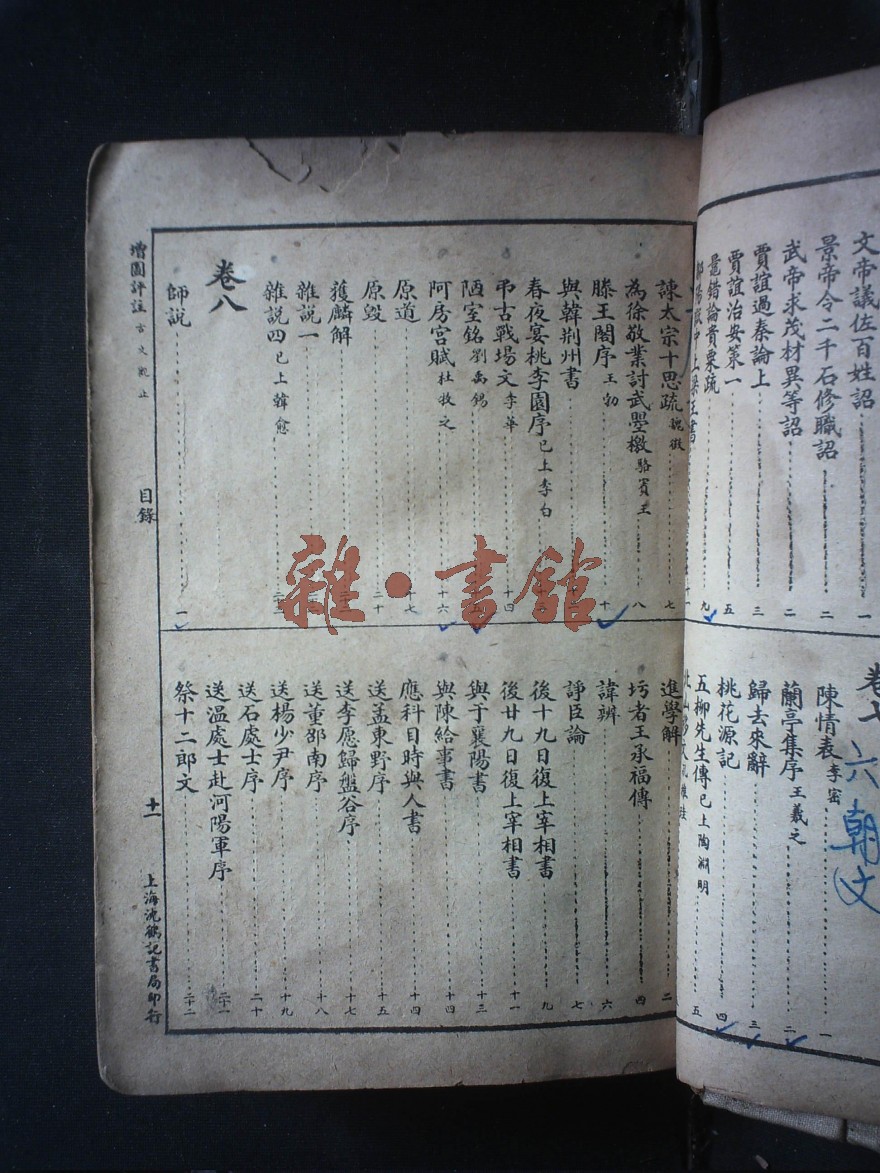 文帝議佐百姓詔 一
景帝令二千石修職詔 二
武帝求茂材異等詔 二
賈誼過秦論上 三
賈誼治安策一 五
鼂錯論貴粟疏 九
卷七
六朝文
陳情表 李密 一
蘭亭集序 王羲之 二
歸去來辭 三
桃花源記 四
五柳先生傳 已上陶淵明 五
諫太宗十思疏 魏徵 七
為徐敬業討武曌檄 駱賓王 八
滕王閣序 王勃 十
與韓荊州書
春夜宴桃李園序 已上李白
弔古戰場文 李華 十四
陋室銘 劉禹錫
阿房宮賦 杜牧之 十六
原道 十七
原毀 二十
獲麟解
雜說一
雜說四 已上韓愈
卷八
師說 一
進學解 二
圬者王承福傳 四
諱辨 六
諍臣論 七
後十九日復上宰相書 九
後廿九日復上宰相書 十一
與于襄陽書 十三
與陳給事書 十四
應科目時與人書 十四
送孟東野序 十五
送李愿歸盤谷序 十七
送董邵南序 十八
送楊少尹序 十九
送石處士序 二十
送温處士赴河陽軍序 二十一
祭十二郎文 二十二
增圖評註古文觀止
目錄
十一
上海沈鶴記書局印行
雜·書館